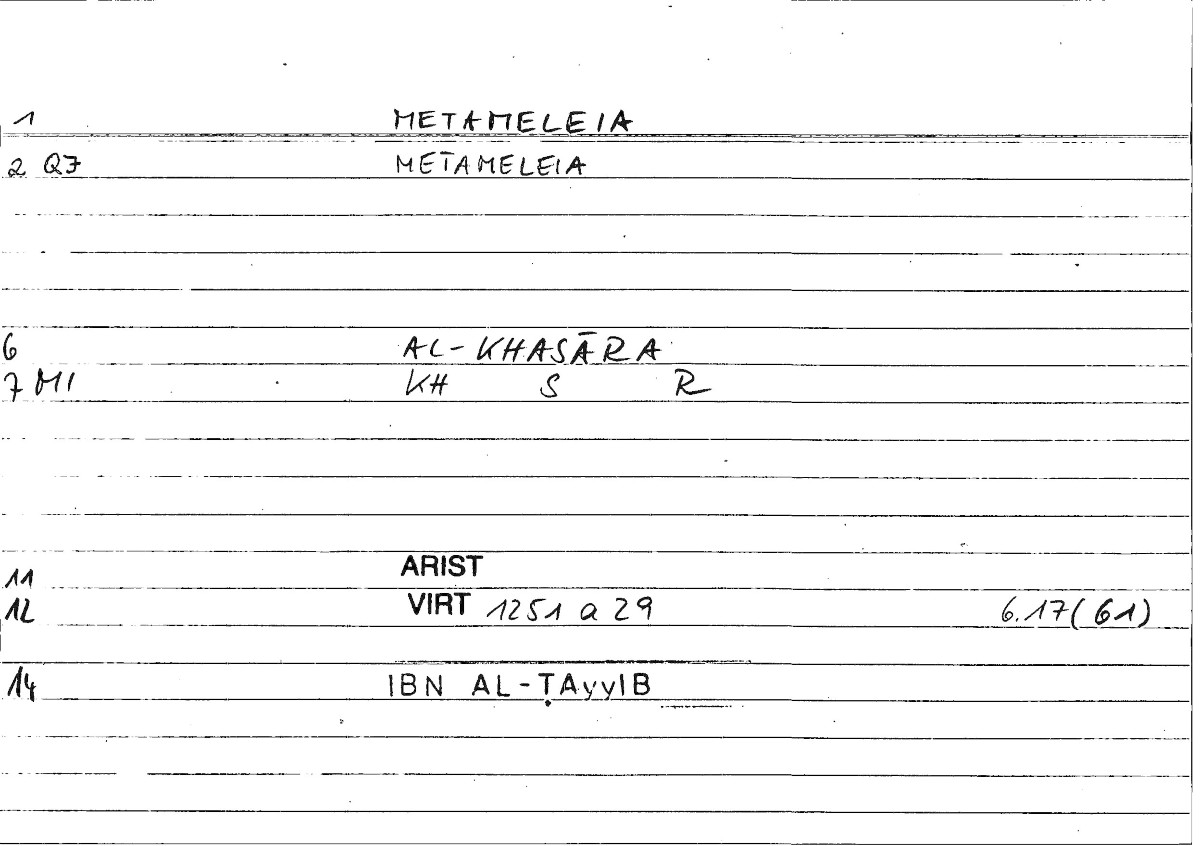 1 METAMELEIA
2 Q7 METAMELEIA
6 AL-KHASĀRA
7 MI KH S R
11 ARIST
12 VIRT 1251 a 29 6.17(61)
14 IBN AL-ṬAyyIB